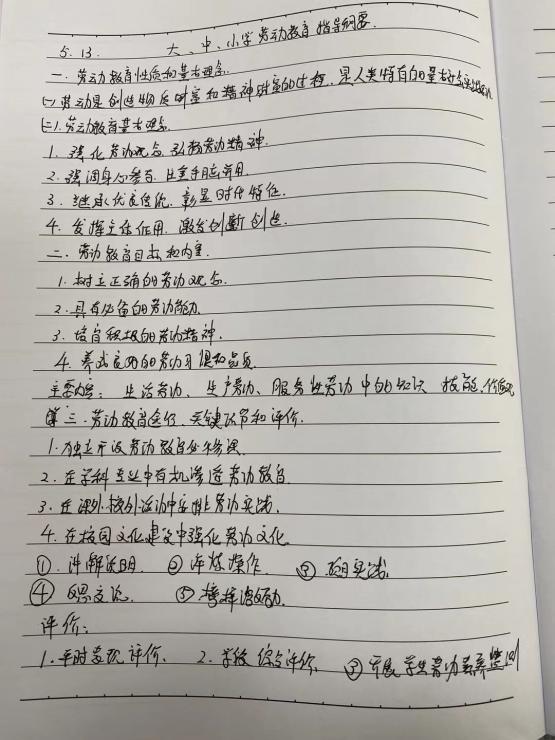 5.13. 大、中、小学劳动教育指导纲要.
一. 劳动教育性质和基本理念.
(一) 劳动是创造物质财富和精神财富的过程. 是人类特有的基本社会实践活动
(二)1.劳动教育基本理念.
1. 强化劳动观念. 弘扬劳动精神.
2. 强调身心参与. 注重手脑并用.
3. 继承优良传统. 彰显时代特征.
4. 发挥主体作用. 激发创新创造.
二. 劳动教育目标和内容.
1. 树立正确的劳动观念.
2. 具有必备的劳动能力.
3. 培育积极的劳动精神.
4. 养成良好的劳动习惯和品质.
主要内容: 生活劳动、生产劳动、服务性劳动中的知识 技能、价值观
三. 劳动教育途径、关键环节和评价.
1. 独立开设劳动教育必修课.
2. 在学科专业中有机渗透劳动教育.
3. 在课外校外活动中安排劳动实践.
4. 在校园文化建设中强化劳动文化.
①. 讲解说明. ② 淬炼操作. ③ 项目实践.
④ 反思交流. ⑤ 榜样激励.
评价:
1. 平时表现评价. 2. 学段综合评价. ③ 开展学生劳动素养监测